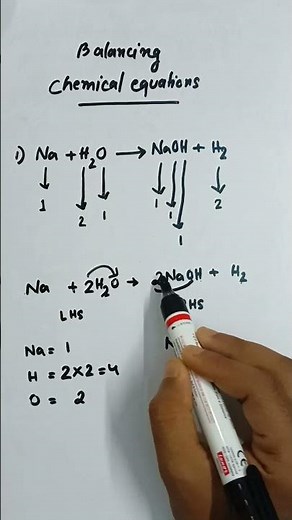 Balancing
Chemical equations
1) Na + H2O → NaOH + H2
1 2 1 1 1 1 2
Na + 2H2O → 2NaOH + H2
LHS RHS
Na = 1
H = 2×2=4
O = 2